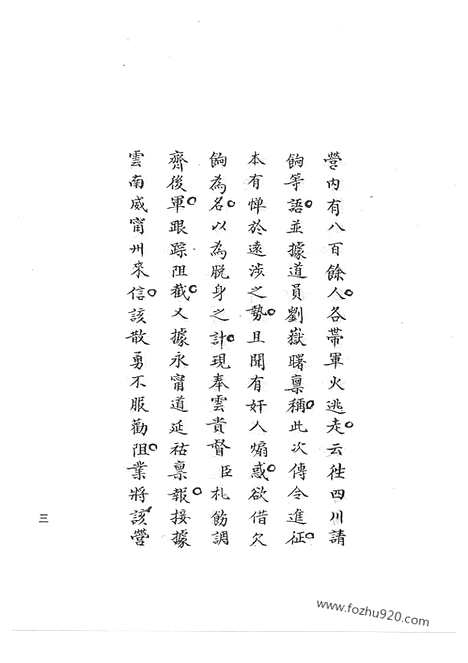 營内有八百餘人。各帶軍火逃走。云往四川請
餉等語。並據道員劉嶽曙稟稱。此次傳令進征。
本有憚於遠涉之勢。且聞有奸人煽惑。欲借欠
餉為名。以為脫身之計。現奉雲貴督臣札飭調
齊後軍。跟踪阻截。又據永甯道延祜稟報。接據
雲南威甯州來信。該散勇不服勸阻。業將該營
三
www.fozhu920.com